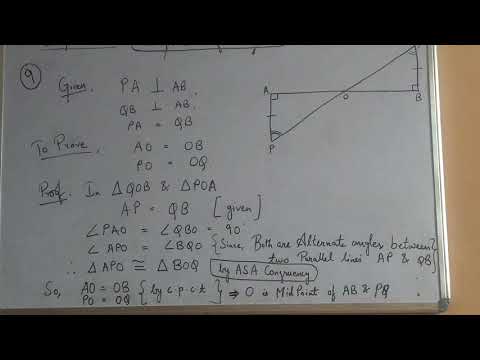 9
Given, PA ⊥ AB,
QB ⊥ AB,
PA = QB
To Prove, AO = OB
PO = OQ
Proof. In △QOB & △POA
AP = QB [given]
∠PAO = ∠QBO = 90°
∠APO = ∠BQO {Since, Both are Alternate angles between
two Parallel lines AP & QB}
∴ △APO ≅ △BOQ by ASA Congruency
So, AO = OB
PO = OQ {by c.p.c.t} ⇒ O is MidPoint of AB & PQ.
A
O
B
P